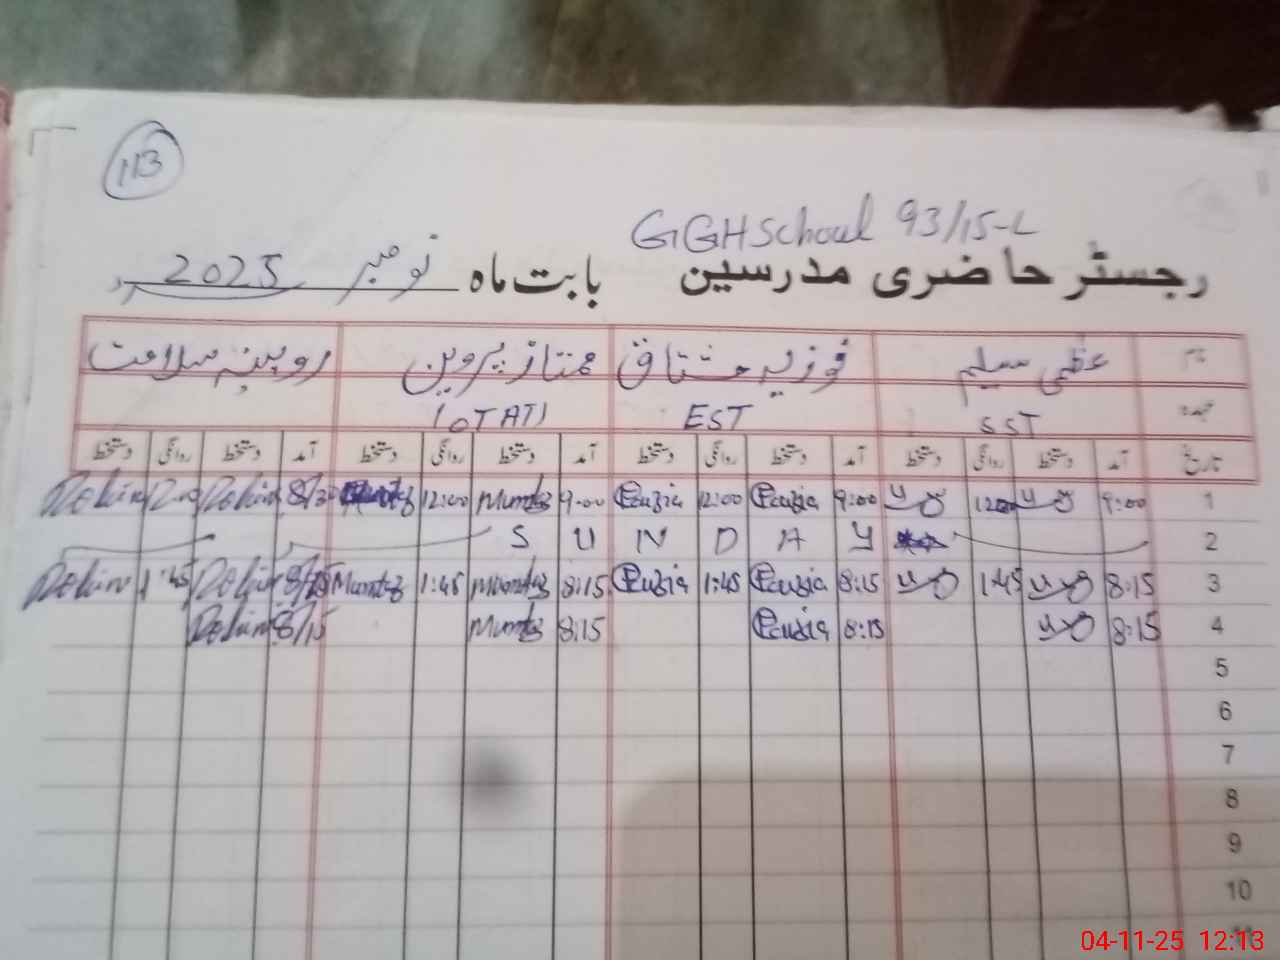 113
GGHSchool 93/15-L
رجسٹر حاضری مدرسین بابت ماہ نومبر 2025
نام عظمیٰ سلیم فوزیہ مشتاق ممتاز پروین روبینہ سلامت
عہدہ SST EST
تاریخ آمد دستخط روانگی دستخط آمد دستخط روانگی دستخط آمد دستخط روانگی دستخط آمد دستخط روانگی دستخط
1 9:00 1200 9:00 Fauzia 12:00 Fauzia 9:00 Mumtaz 12:00
2 S U N D A Y
3 8:15 1:45 8:15 Fauzia 1:45 Fauzia 8:15 Mumtaz 1:45 Mumtaz 1:45
4 8:15 8:15 Fauzia 8:15 Mumtaz 8/15
5
6
7
8
9
10
04-11-25 12:13